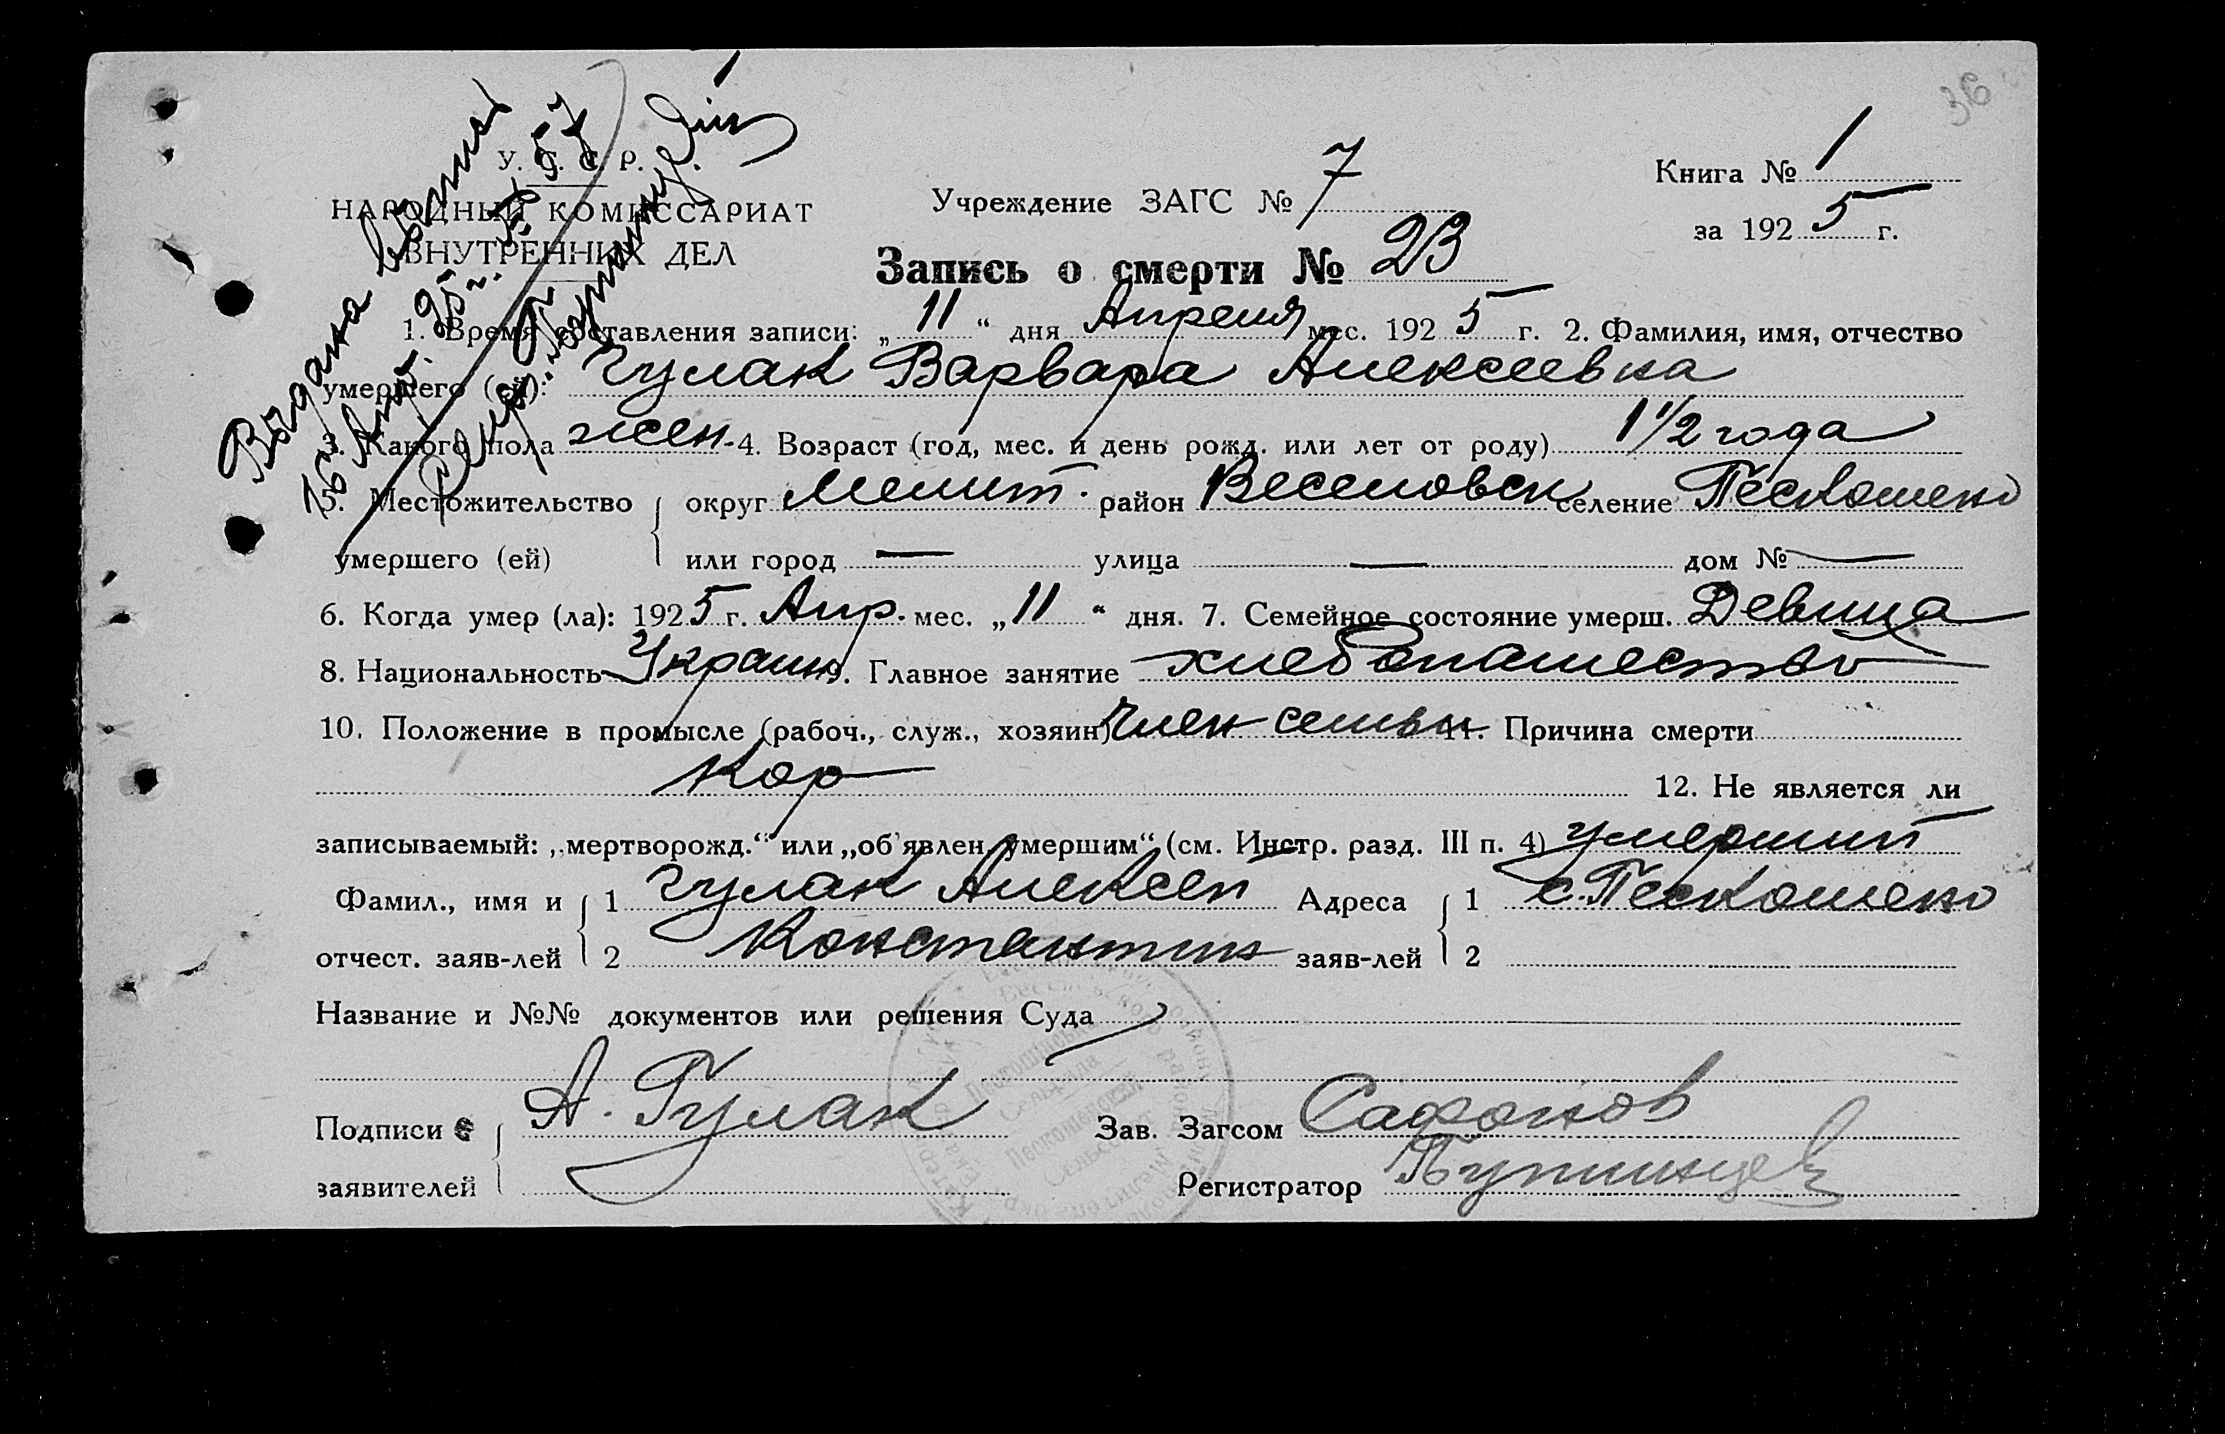 36
У. С. С. Р.
НАРОДНЫЙ КОМИССАРИАТ
ВНУТРЕННИХ ДЕЛ
Выдана выпись
16 Апр. 25 г. № 57
Учреждение ЗАГС № 7
Книга № 1
за 1925 г.
Запись о смерти № 23
1. Время составления записи: „11“ дня Апреля мес. 1925 г. 2. Фамилия, имя, отчество
умершего (ей): Гулак Варвара Алексеевна
3. Какого пола жен. 4. Возраст (год, мес. и день рожд. или лет от роду) 1 1/2 года
5. Местожительство округ Мелит. район Веселовск селение Пескошено
умершего (ей) или город — улица — дом № —
6. Когда умер (ла): 1925 г. Апр. мес. „11“ дня. 7. Семейное состояние умерш. Девица
8. Национальность Украин 9. Главное занятие хлебопашество
10. Положение в промысле (рабоч., служ., хозяин) член семьи 11. Причина смерти
Кор
12. Не является ли
записываемый: „мертворожд.“ или „об'явлен. умершим“ (см. Инстр. разд. III п. 4) умерший
Фамил., имя и 1 Гулак Алексей Адреса 1 с. Пескошено
отчест. заяв-лей 2 Константин заяв-лей 2
Название и №№ документов или решения Суда
Подписи А. Гулак Зав. Загсом Сафонов
заявителей Регистратор